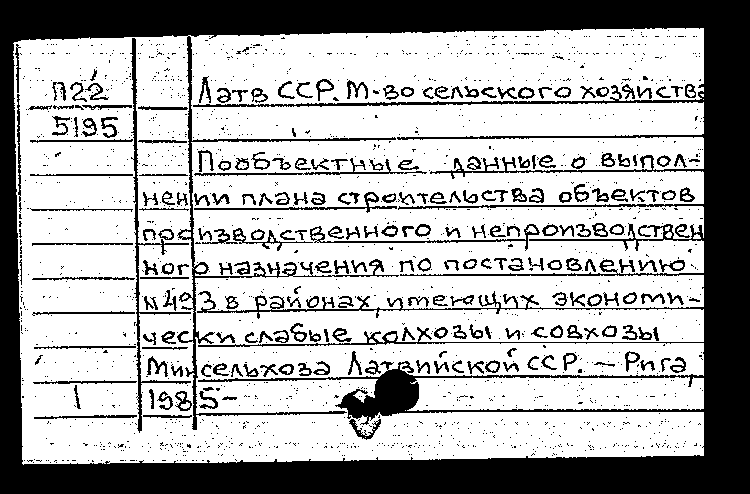 П22 Латв ССР. М-во сельского хозяйства
5195
Пообъектные данные о выпол-
нении плана строительства объектов
производственного и непроизводствен
ного назначения по постановлению
N 493 в районах, имеющих экономи-
чески слабые колхозы и совхозы
Минсельхоза Латвийской ССР. – Рига,
1 1985–